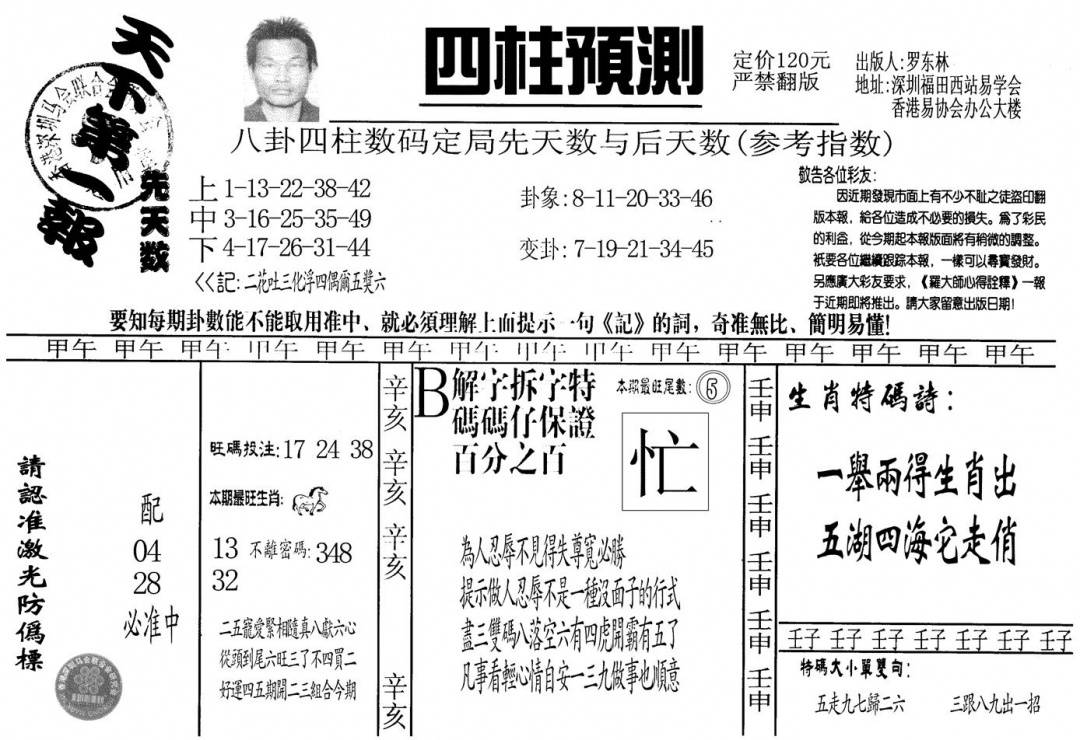 天下第一報
四柱預測
定价120元
严禁翻版
出版人:罗东林
地址:深圳福田西站易学会
香港易协会办公大楼
八卦四柱数码定局先天数与后天数(参考指数)
先天数
上 1-13-22-38-42
中 3-16-25-35-49
下 4-17-26-31-44
<<記:二花吐三化浮四偶爾五獎六
卦象:8-11-20-33-46
变卦:7-19-21-34-45
敬告各位彩友:
因近期發現市面上有不少不耻之徒盜印翻
版本報,給各位造成不必要的損失。為了彩民
的利益,從今期起本報版面將有稍微的調整。
衹要各位繼續跟踪本報,一樣可以尋寶發財。
另應廣大彩友要求,《羅大師心得詮釋》一報
于近期即將推出。請大家留意出版日期!
要知每期卦數能不能取用准中、就必須理解上面提示一句《記》的詞,奇准無比、簡明易懂!
甲午 甲午 甲午 甲午 甲午 甲午 甲午 甲午 甲午 甲午 甲午 甲午 甲午 甲午 甲午
請認准激光防偽標
配
04
28
必准中
旺碼投注:17 24 38
本期最旺生肖:
13 不離密碼:348
32
二五寵愛緊相隨真八獻六心
從頭到尾六旺三了不四買二
好運四五期開二三組合今期
辛亥 辛亥 辛亥 辛亥
B解字拆字特
碼碼仔保證
百分之百
本期最旺尾數:⑤
忙
為人忍辱不見得失尊寬必勝
提示做人忍辱不是一種沒面子的行式
盡三雙碼八落空六有四虎開霸有五了
凡事看輕心情自安一三九做事也順意
壬申 壬申 壬申 壬申 壬申 壬申
生肖特碼詩:
一舉兩得生肖出
五湖四海它走俏
壬子 壬子 壬子 壬子 壬子 壬子 壬子
特碼大小單雙句:
五走九七歸二六 三跟八九出一招